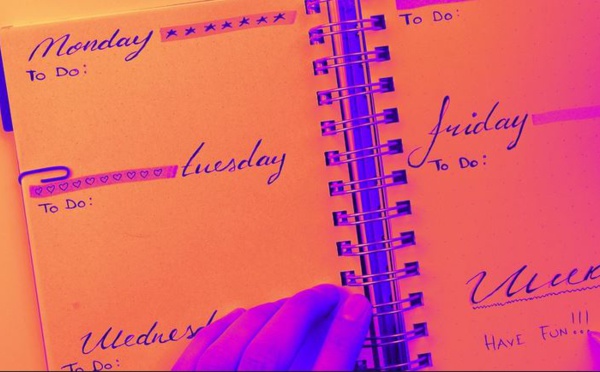 Monday
To Do:
tuesday
To Do:
Wednesd
To Do:
To Do:
friday
To Do:
HAVE FUN!!!